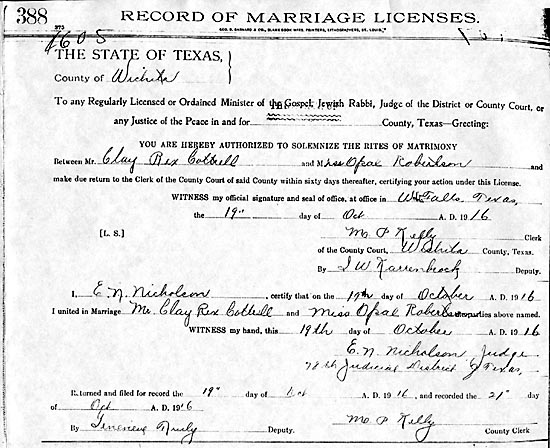 388 RECORD OF MARRIAGE LICENSES.
GEO. D. BARNARD & CO., BLANK BOOK MFRS. PRINTERS, LITHOGRAPHERS, ST. LOUIS.
THE STATE OF TEXAS,
County of Wichita
To any Regularly Licensed or Ordained Minister of the Gospel, Jewish Rabbi, Judge of the District or County Court, or
any Justice of the Peace in and for County, Texas—Greeting:
YOU ARE HEREBY AUTHORIZED TO SOLEMNIZE THE RITES OF MATRIMONY
Between Mr. Clay Rex Cottrell and Miss Opal Robertson and
make due return to the Clerk of the County Court of said County within sixty days thereafter, certifying your action under this License.
WITNESS my official signature and seal of office, at office in W. Falls, Texas,
the 19" day of Oct A. D. 1916
[L. S.] M. P. Kelly Clerk
of the County Court, Wichita County, Texas.
By J W Karrenbrock Deputy.
I, E. N. Nicholson, certify that on the 19th day of October A. D. 1916
I united in Marriage Mr. Clay Rex Cottrell and Miss Opal Robertson parties above named.
WITNESS my hand, this 19th day of October A. D. 1916
E. N. Nicholson, Judge
78th Judicial District of Texas,
Returned and filed for record the 19" day of Oct A. D. 1916, and recorded the 21" day
of Oct A. D. 1916 M. P. Kelly
By Deputy. County Clerk